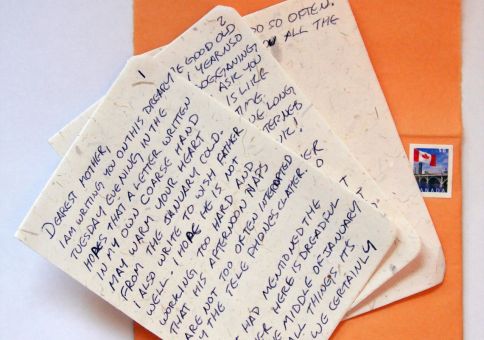 1
DEAREST MOTHER,
I AM WRITING YOU ON THIS DREARY
TUESDAY EVENING IN THE
HOPES THAT A LETTER WRITTEN
IN MY OWN COARSE HAND
MAY WARM YOUR HEART
FROM THE JANUARY COLD.
I ALSO WRITE TO WISH FATHER
WELL. I HOPE HE IS NOT
WORKING TOO HARD AND
THAT HIS AFTERNOON NAPS
ARE NOT TOO OFTEN INTERUPTED
BY THE TELEPHONES CLATER.
HAD MENTIONED THE
HERE IS DREADFUL
MIDDLE OF JANUARY
ALL THINGS. IT'S
WE CERTAINLY
2
GOOD OLD
YEAR
ASK YOU
IS LIKE
TIME
LONG
DO SO OFTEN.
ALL THE